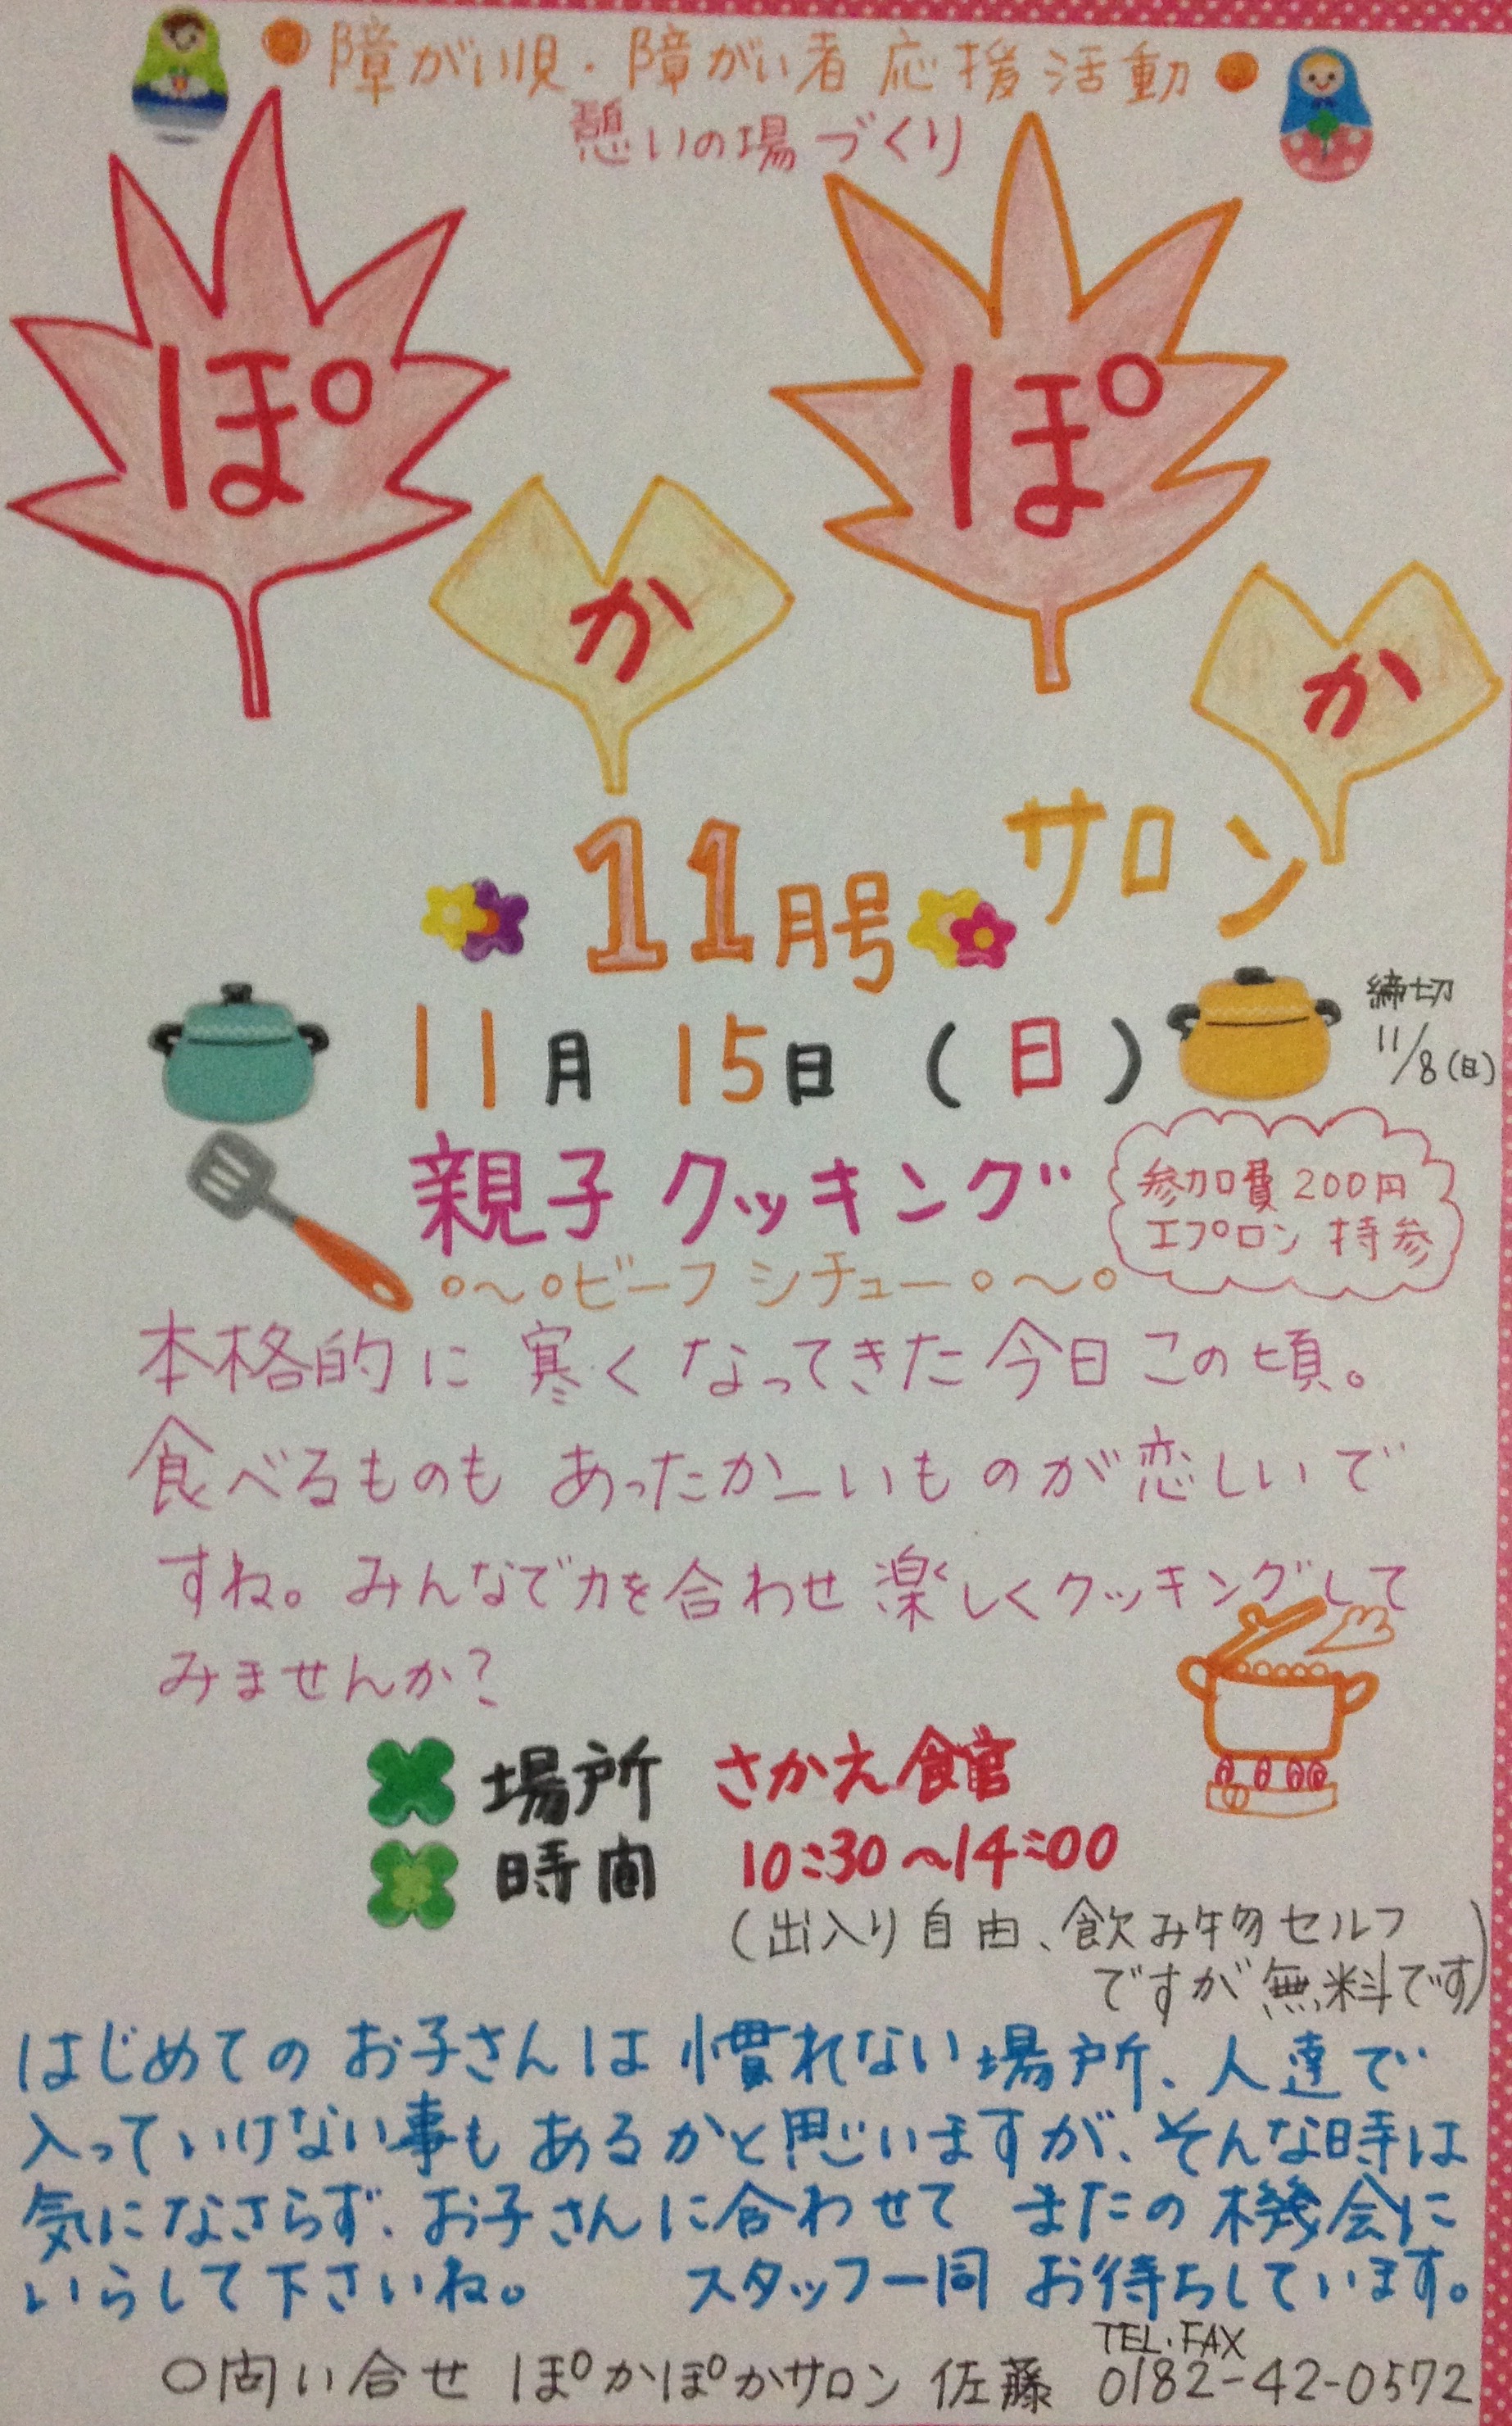 障がい児・障がい者 応援活動
憩いの場づくり
ぽかぽか
サロン
11月号
11月15日(日)
締切
11/8(日)
親子クッキング
参加費200円
エプロン持参
ビーフシチュー
本格的に寒くなってきた今日この頃。
食べるものも あったかーいものが恋しいで
すね。みんなで力を合わせ楽しくクッキングして
みませんか?
場所 さかえ館
時間 10:30〜14:00
(出入り自由、飲み物セルフ
ですが無料です)
はじめてのお子さんは慣れない場所、人達で
入っていけない事もあるかと思いますが、そんな時は
気になさらず、お子さんに合わせて またの機会に
いらして下さいね。 スタッフ一同 お待ちしています。
TEL・FAX
○問い合せ ぽかぽかサロン 佐藤 0182-42-0572